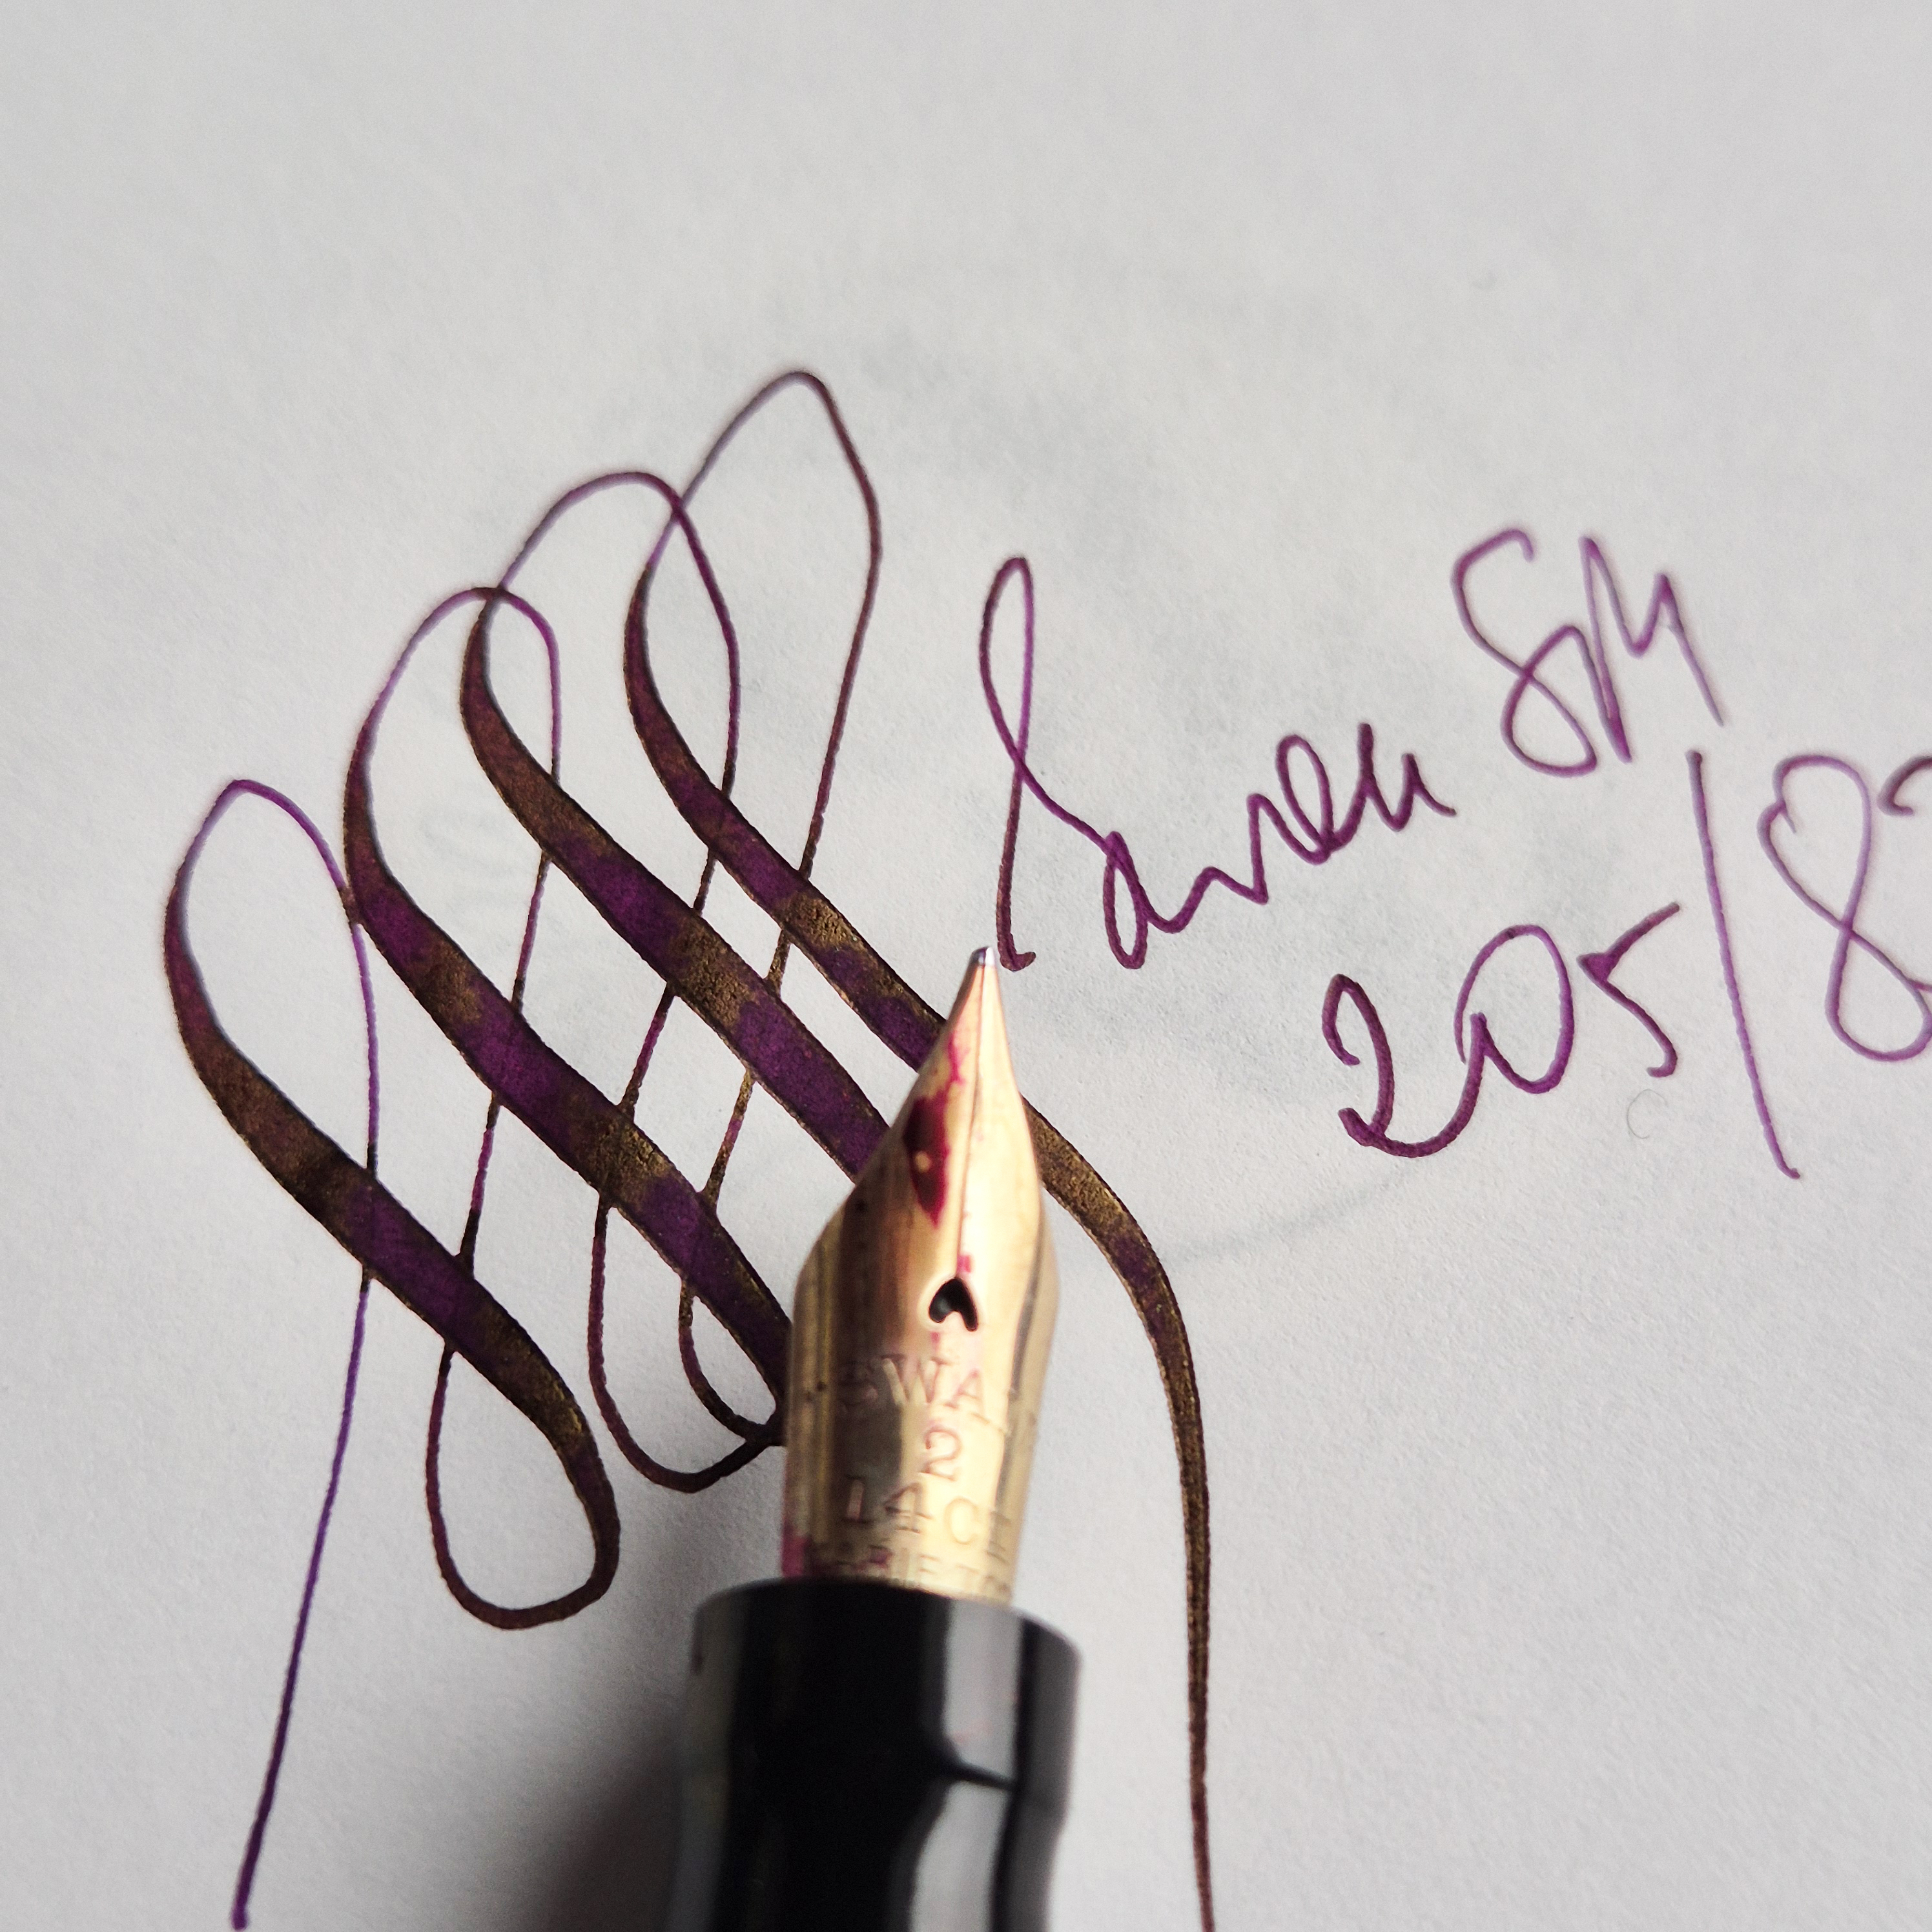 Swan SM
205/82
SWA
2
14C